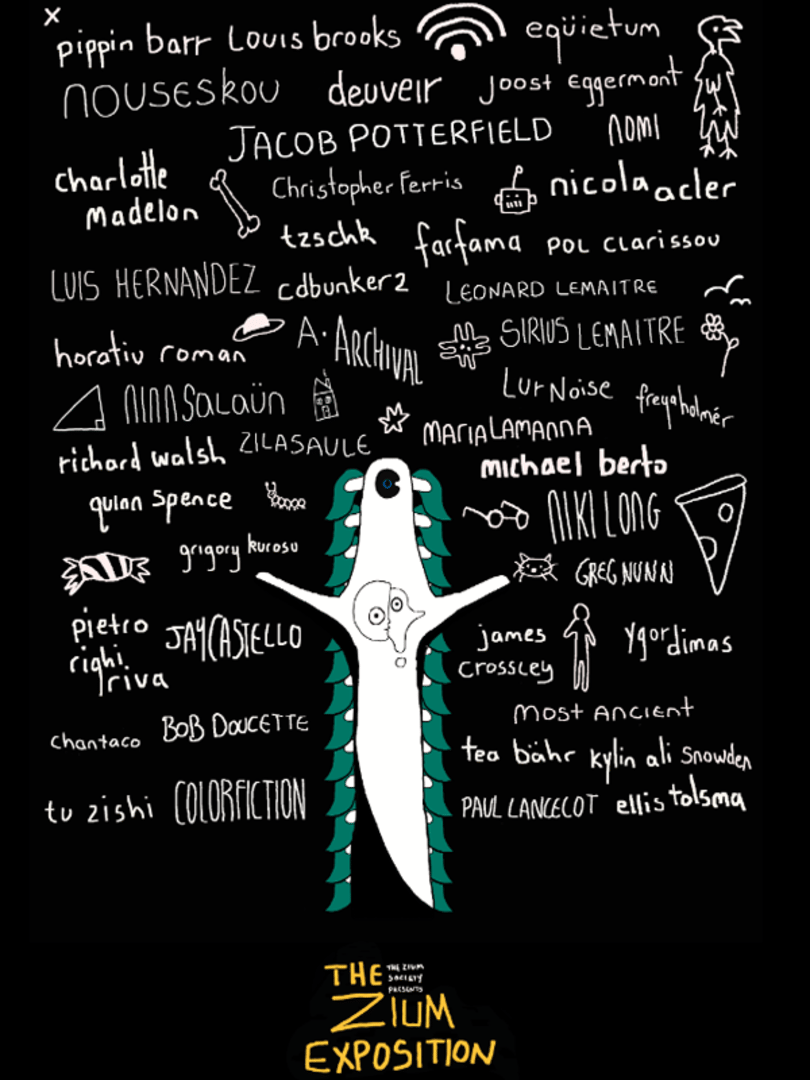 x
pippin barr Louis brooks eqüietum
nouseskou deuveir Joost Eggermont
JACOB POTTERFIELD nomi
charlotte madelon Christopher Ferris nicola acler
tzschk farfama POL CLARISSOU
LUIS HERNANDEZ cdbunker2 LEONARD LEMAITRE
horatiu roman A. ARCHIVAL SIRIUS LEMAITRE
NINNSaLaün LurNoise freya holmér
richard walsh ZILASAULE MARIALAMANNA
quinn Spence michael berto
grigory kurosu NIKI LONG
GREG NUNN
pietro righi riva JAY CASTELLO james crossley Ygor dimas
Chantaco BOB DOUCETTE MOST ANCIENT
tea bähr kylin ali Snowden
tu zishi COLORFICTION PAUL LANCELOT ellis tolsma
THE THE ZIUM SOCIETY PRESENTS
ZIUM
EXPOSITION